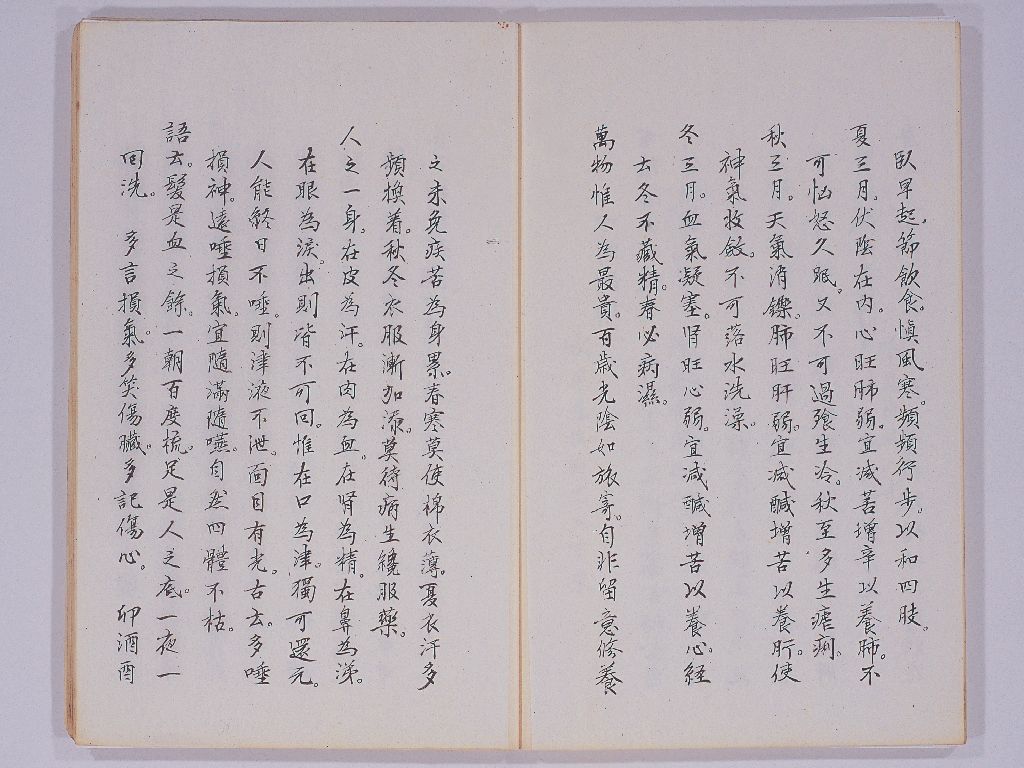 臥早起。節飲食。慎風寒。頻頻行步。以和四肢。
夏三月。伏陰在內。心旺肺弱。宜減苦增辛以養肺。不
可恼怒久眠。又不可過飱生冷。秋至多生瘧痢。
秋三月。天氣消鑠。肺旺肝弱。宜減鹹增苦以養肝。使
神氣收斂。不可落水洗澡。
冬三月。血氣凝塞。腎旺心弱。宜減鹹增苦以養心。経
云冬不藏精。春必病濕。
萬物惟人為最貴。百歲光陰如旅寄。自非留意修養
之未免疾苦為身累。春寒莫使棉衣薄。夏衣汗多
頻換着。秋冬衣服漸加添。莫待病生纔服藥。
人之一身。在皮為汗。在肉為血。在腎為精。在鼻為涕。
在眼為淚。出則皆不可回。惟在口為津。獨可還元。
人能終日不唾。則津液不泄。面目有光。古云。多唾
損神。遠唾損氣。宜隨滿隨嚥。自然四體不枯。
語云。髮是血之餘。一朝百度梳。足是人之底。一夜一
回洗。　多言損氣。多笑傷臟。多記傷心。　卯酒酉